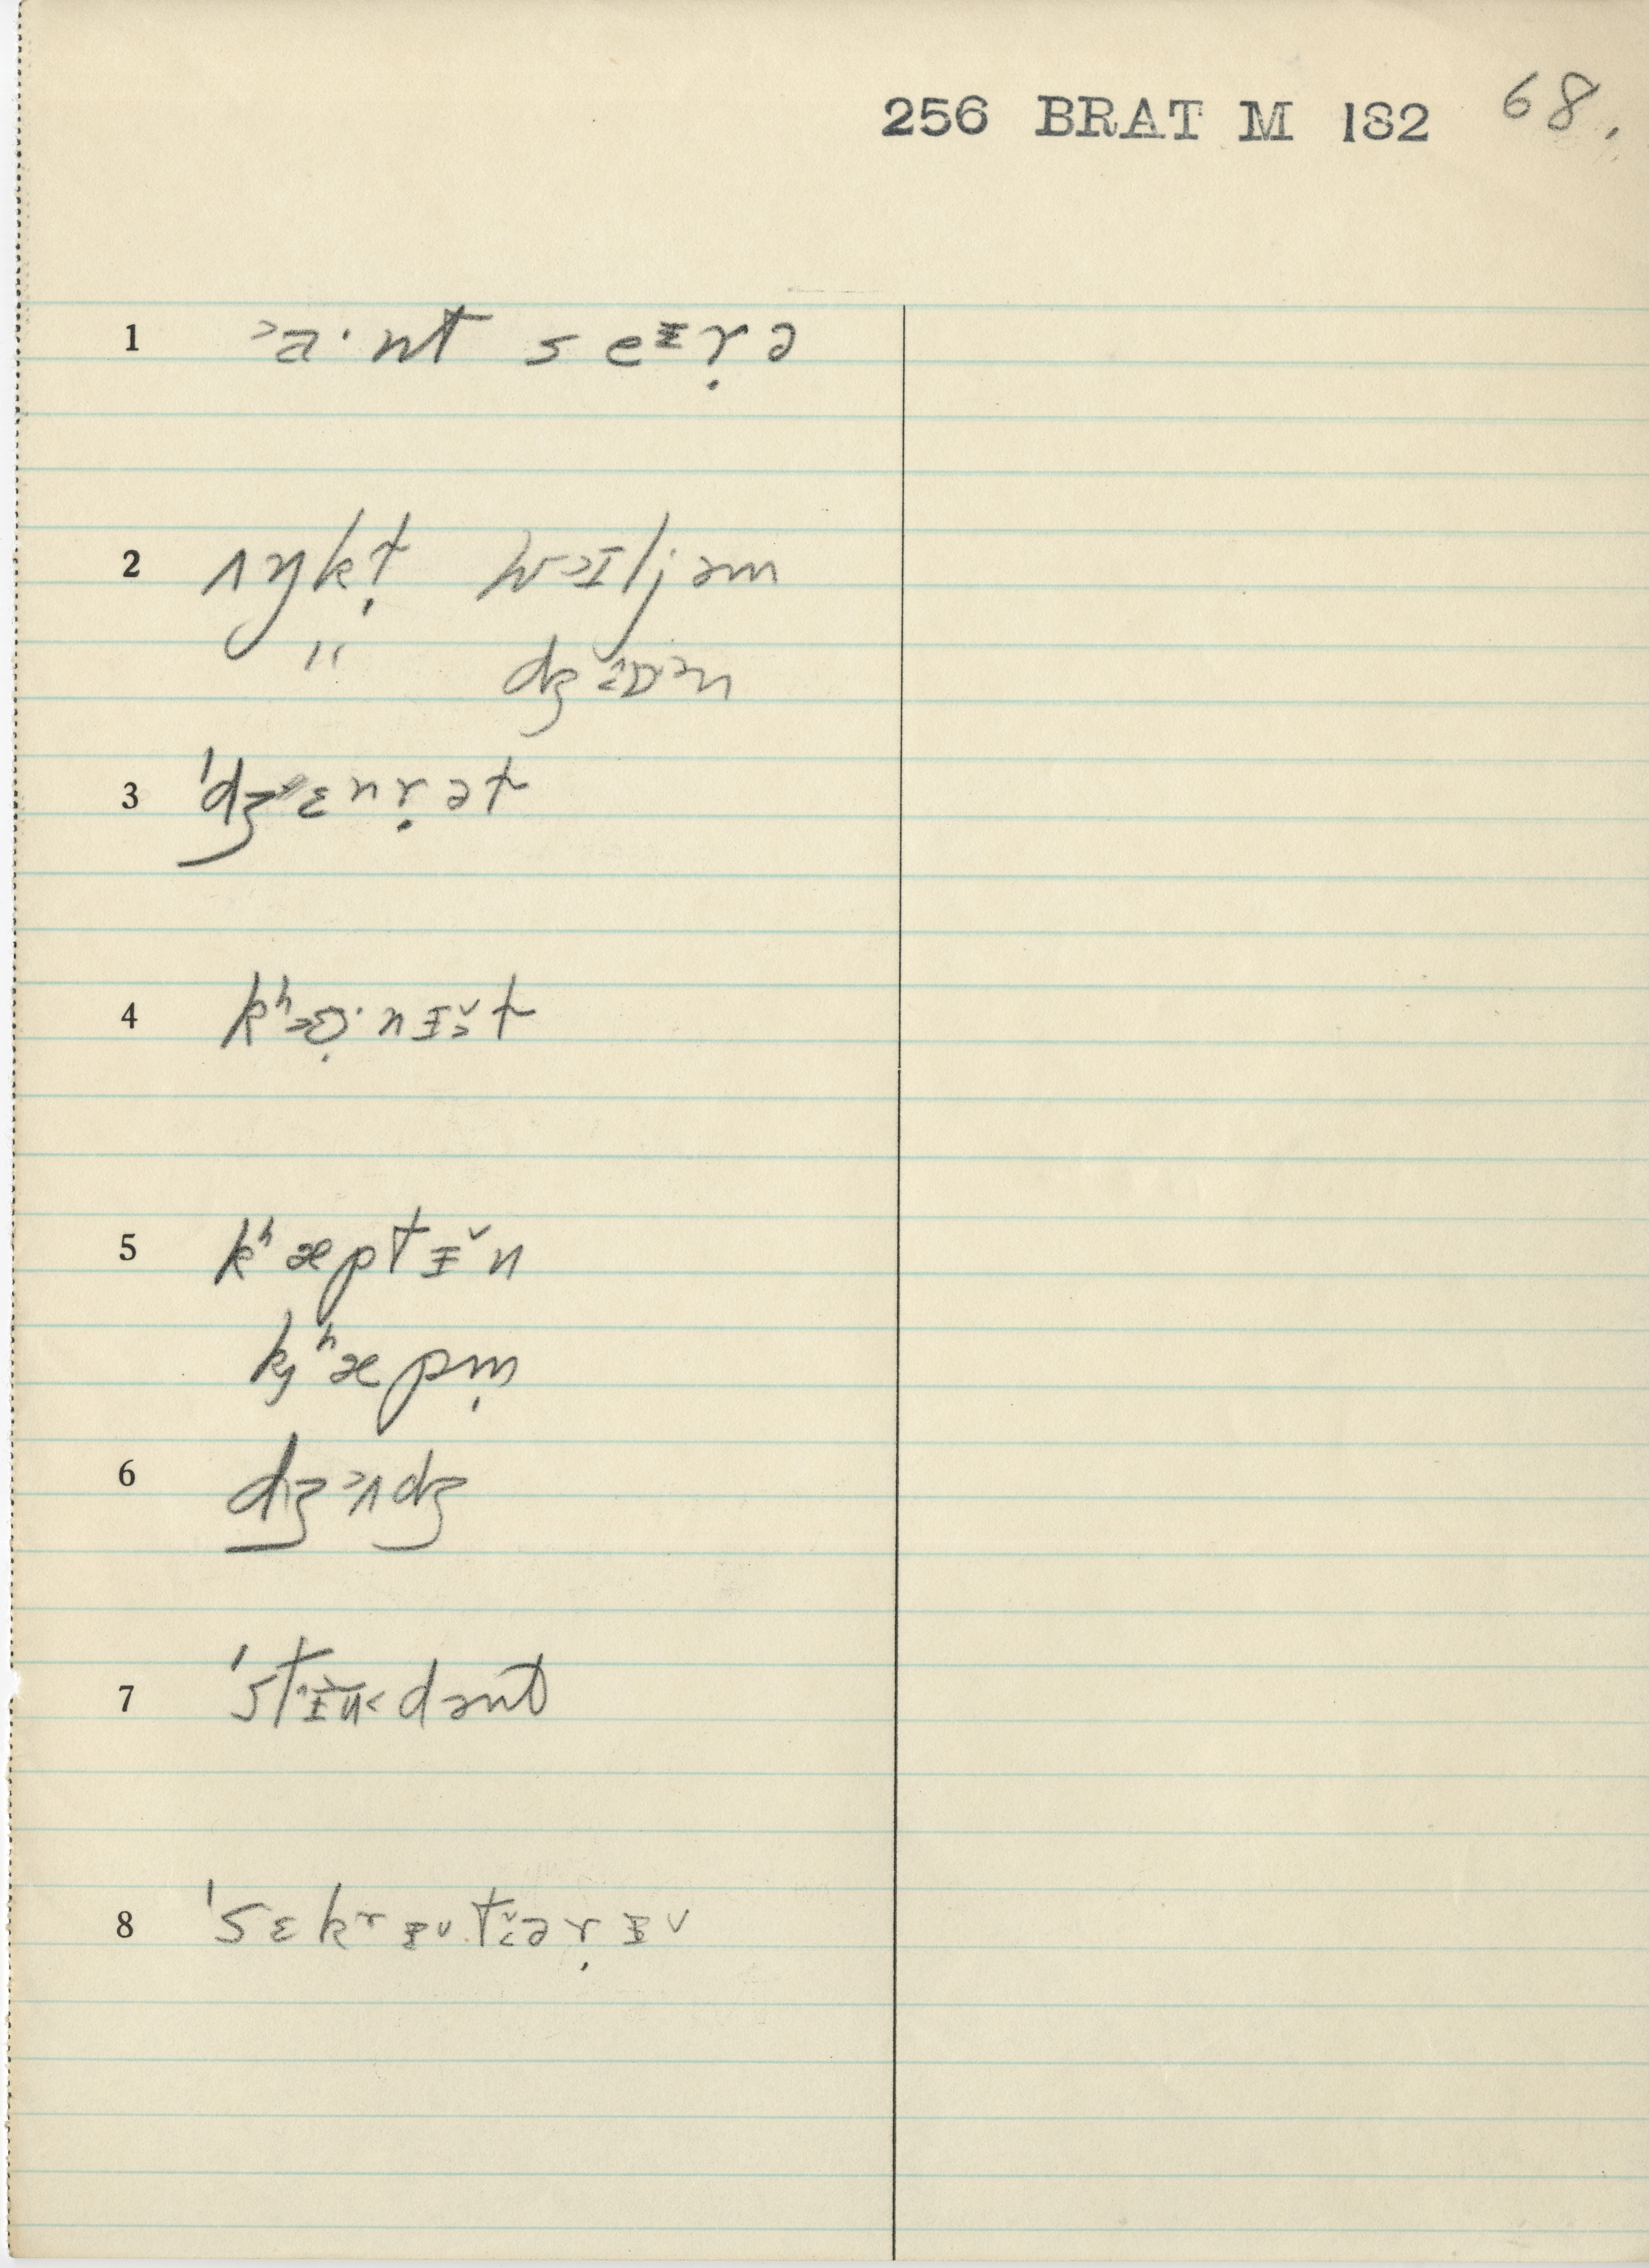 256 BRAT M 182 68.
1 ˃a· nt s eᵻṛə
2 ʌŋkţ wɪljəm
" dʒɒ˃n
3 ˈdʒɛnṛət
4 kʰɒ̣·nɪ̵ˇt
5 kʰæptɪ̵ˇn
kjʰæpm̩
6 dʒ˃ʌdʒ
7 ˈstɪ̵ʉ˂dənt
8 ˈsɛkʳɪ̵ˇtˇəṛɪ̵ˇ